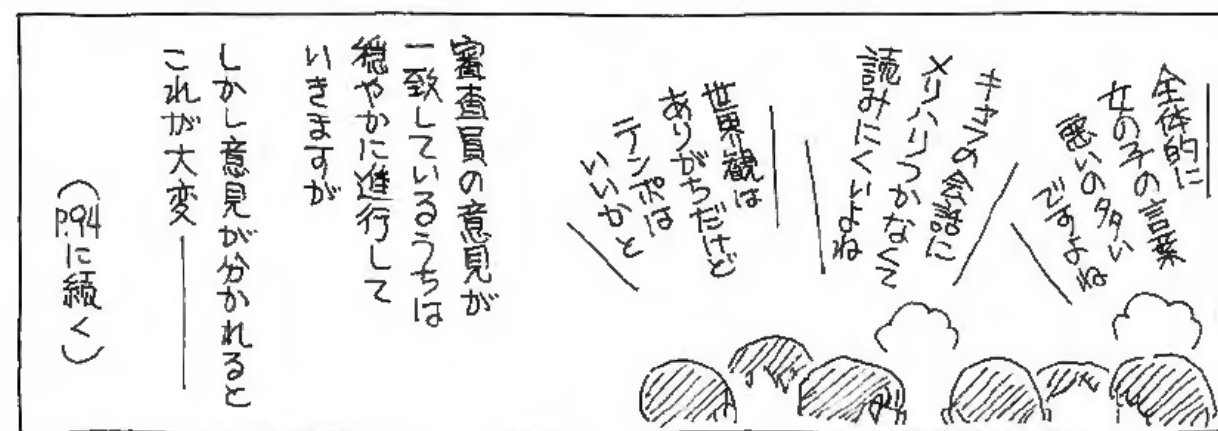 全体的に
女の子の言葉
悪いの多い
ですよね
キャラの会話に
メリハリつかなくて
読みにくいよね
世界観は
ありがちだけど
テンポは
いいかと
審査員の意見が
一致しているうちは
穏やかに進行して
いきますが
しかし意見が分かれると
これが大変――
(P.94に続く)